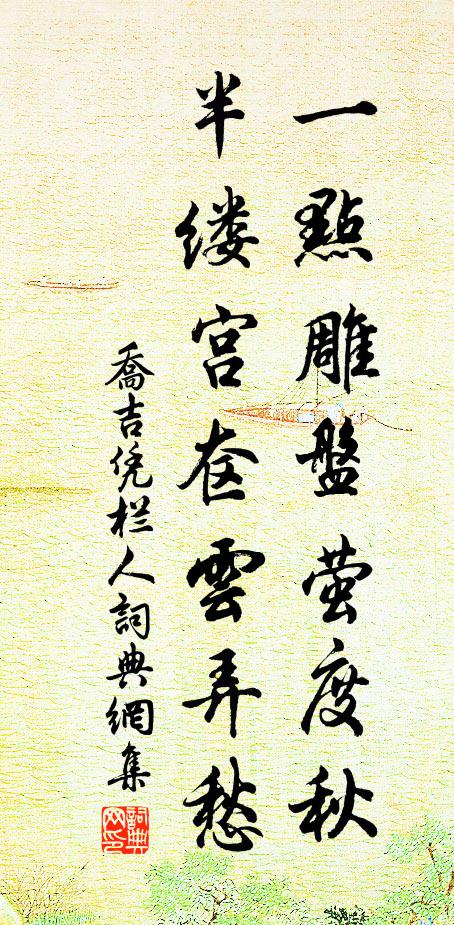 一點雕盤萤度秋
半缕宫奁雲弄愁
喬吉凭栏人詞典網集
詞典网印